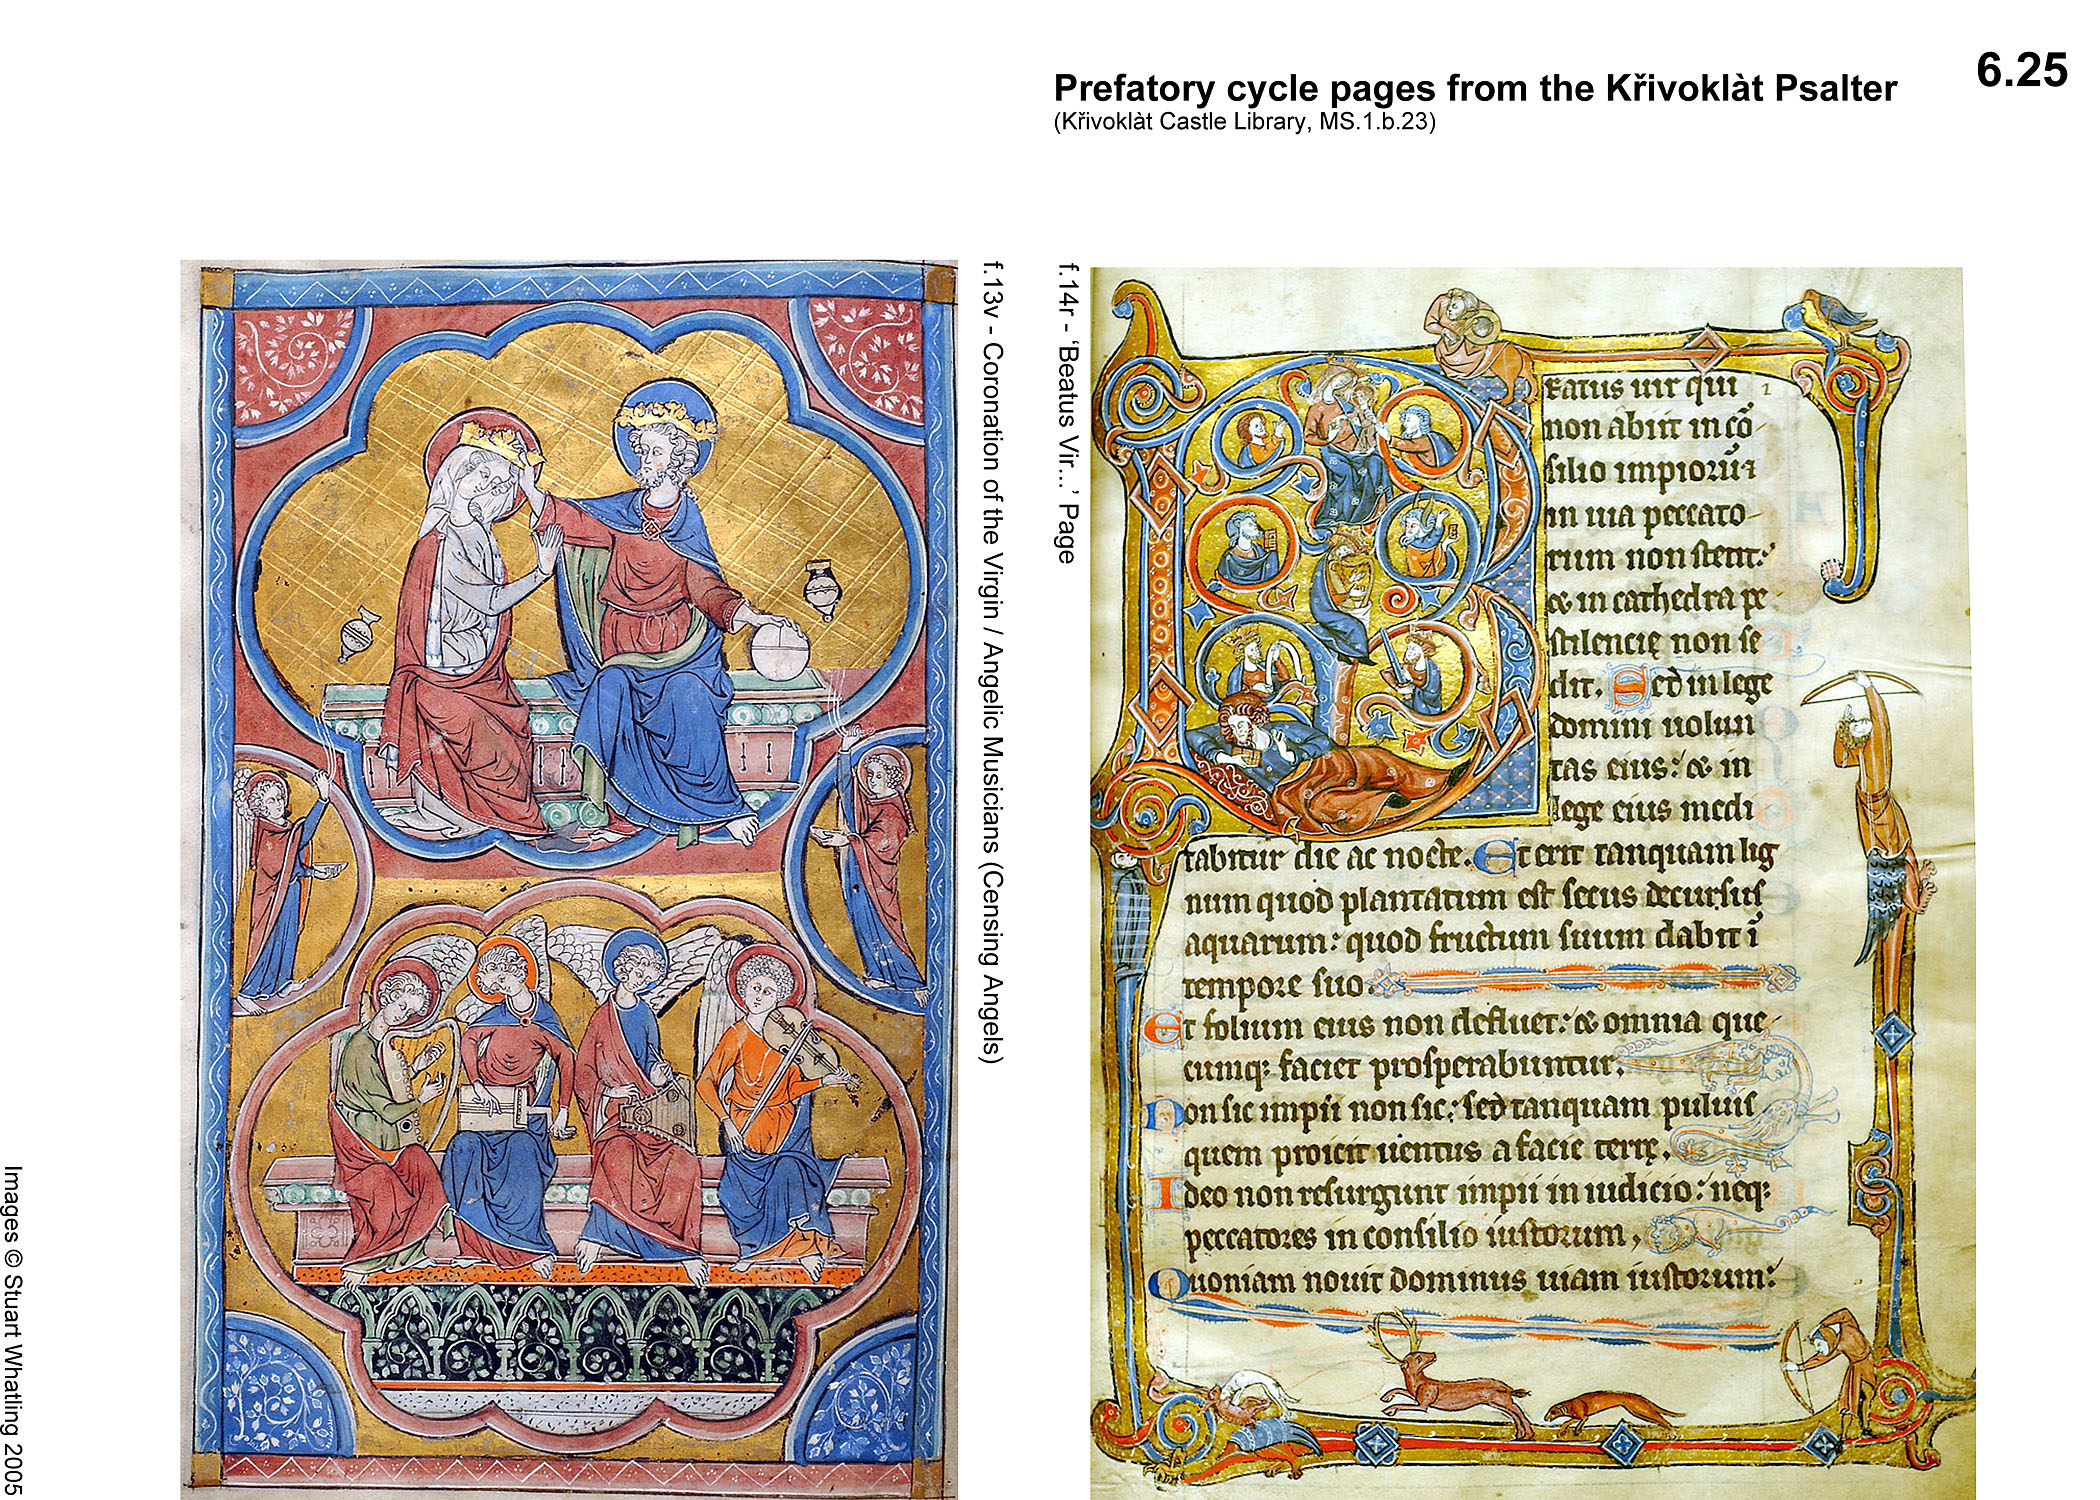 6.25
Prefatory cycle pages from the Křivoklàt Psalter
(Křivoklàt Castle Library, MS.1.b.23)
f.13v - Coronation of the Virgin / Angelic Musicians (Censing Angels)
f.14r - ‘Beatus Vir...’ Page
B
eatus uir qui
non abiit in cō
silio impiorū ⁊
in uia peccato
rum non stetit:
& in cathedra pe
stilencię non se
dit. Sed in lege
domini uolun
tas eius: & in
lege eius medi
tabitur die ac nocte. Et erit tanquam lig
num quod plantatum est secus decursus
aquarum: quod fructum suum dabit ī
tempore suo.
Et folium eius non defluet: & omnia que
cumq; faciet prosperabuntur.
Non sic impii non sic: sed tanquam puluis
quem proicit uentus a facie terrę.
Ideo non resurgunt impii in iudicio: neq;
peccatores in consilio iustorum,
Quoniam nouit dominus uiam iustorum:
Images © Stuart Whatling 2005